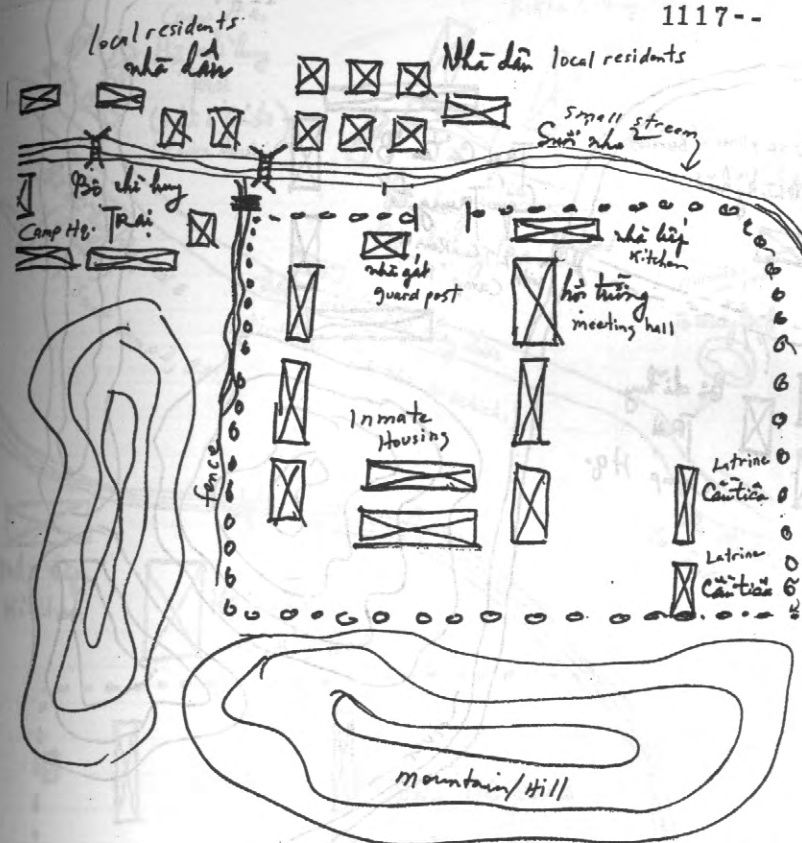 1117--
local residents
nhà dân
Nhà dân local residents
small stream
Suối nhỏ
Bộ chỉ huy
Camp Hq. Trại
nhà gát
guard post
nhà bếp
Kitchen
hội trường
meeting hall
Inmate
Housing
fence
Latrine
Cầu tiêu
Latrine
Cầu tiêu
Mountain/Hill